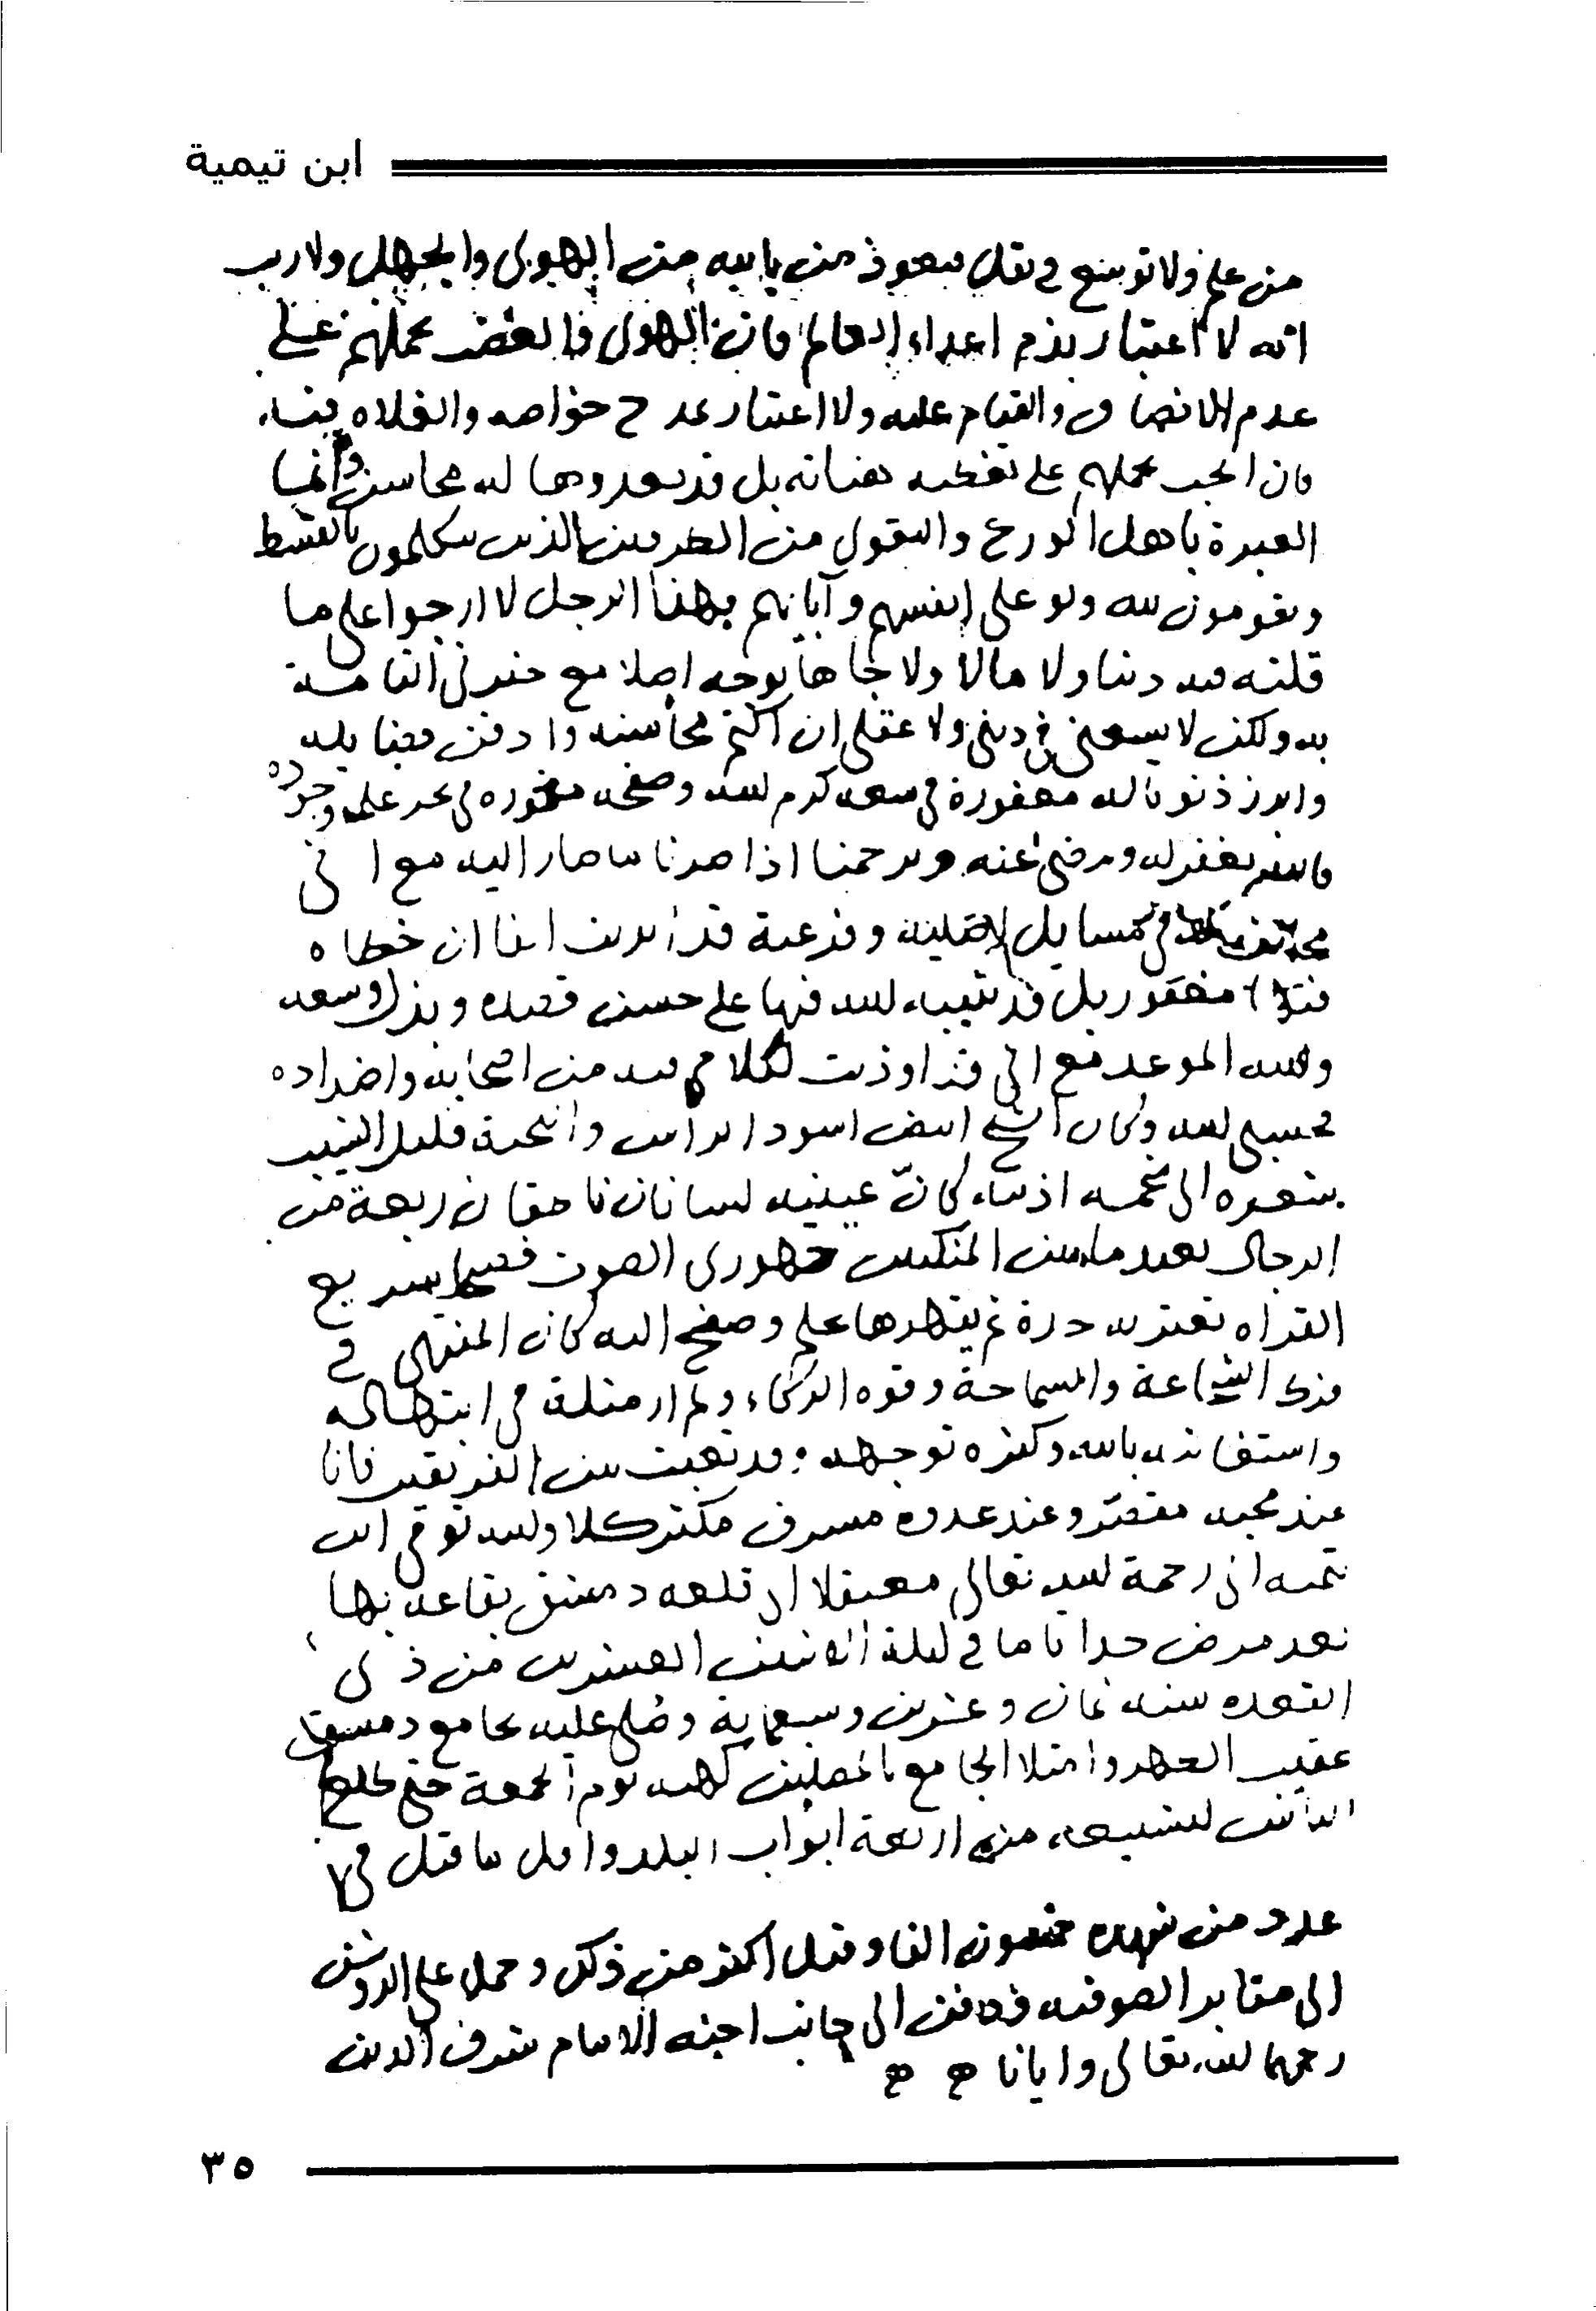 ابن تيمية
من علم ولا توسع في نقل فنعوذ من يابيه من الهوى والجهل ولا ريب
انه لا اعتبار بذم اعداء العالم فان الهوى والغضب يحملهم على
عدم الانصاف والقيام عليه ولا اعتبار بمدح خواصه والغلاه فيه
فان الحب يحملهم على تغطيه هناته بل قد يعدوها له محاسن وانما
العبرة باهل الورع والتقوى من الطرفين الذين يتكلمون بالقسط
ويقومون لله ولو على انفسهم وآبائهم فهذا الرجل لا ارجوا على ما
قلته فيه دنيا ولا مالا ولا جاها بوجه اصلا مع خبرتي التامة
به ولكن لا يسعني في ديني ولا عقلي ان اكتم محاسنه وادفن فضايله
وابرز ذنوبا له مغفورة في سعه كرم الله وصفحه مغموره في بحر علمه وجوده
فالله يغفر له ويرضى عنه ويرحمنا اذا صرنا الى ما صار اليه مع اني
مخالف له في مسايل اصلية وفرعية قد ابديت انفا ان خطاه
فيها مغفور بل قد يثيبه الله فيها على حسن قصده وبذل وسعه
والله الموعد مع اني قد اوذيت لكلامي فيه من اصحابه واضداده
فحسبي الله وكان الشيخ ابيض اسود الراس واللحية قليل الشيب
شعره الى شحمه اذنيه كان عينيه لسانان ناطقان ربعة من
الرجال بعيد ما بين المنكبين جهوري الصوت فصيحا سريع
القراه تعتريه حدة ثم يقهرها بحلم وصفح اليه كان المنتهى في
فرط الشجاعة والسماحة وقوه الذكاء ولم ار مثله في ابتهاله
واستغاثته بالله وكثره توجهه وقد تعبت بين الفريقين فانا
عند محبه مقصر وعند عدوه مسرف مكثر كلا والله توفي ابن
تيميه الى رحمة الله تعالى معتقلا بقلعه دمشق بقاعه بها
بعد مرض جد اياما في ليلة الاثنين العشرين من ذي
القعده سنه ثمان وعشرين وسبعماية وصلي عليه بجامع دمشق
عقيب الظهر وامتلا الجامع بالمصلين كهيه يوم الجمعة حتى طلع
الناس لتشييعه من اربعة ابواب البلد واقل ما قيل في
عدد من شهده خمسون الفا وقيل اكثر من ذلك وحمل على الروس
الى مقابر الصوفيه فدفن الى جانب اخيه الامام شرف الدين
رحمهما الله تعالى وايانا هـ هـ
٣٥